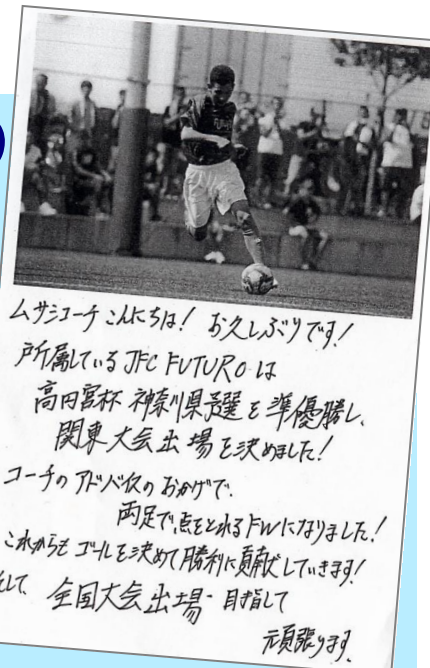 ムサシコーチこんにちは! お久しぶりです!
所属しているJFC FUTUROは
高円宮杯 神奈川県予選を準優勝し、
関東大会出場を決めました!
コーチのアドバイスのおかげで、
両足で点をとれるFWになりました!
これからもゴールを決めて勝利に貢献していきます!
そして、全国大会出場 目指して
頑張ります